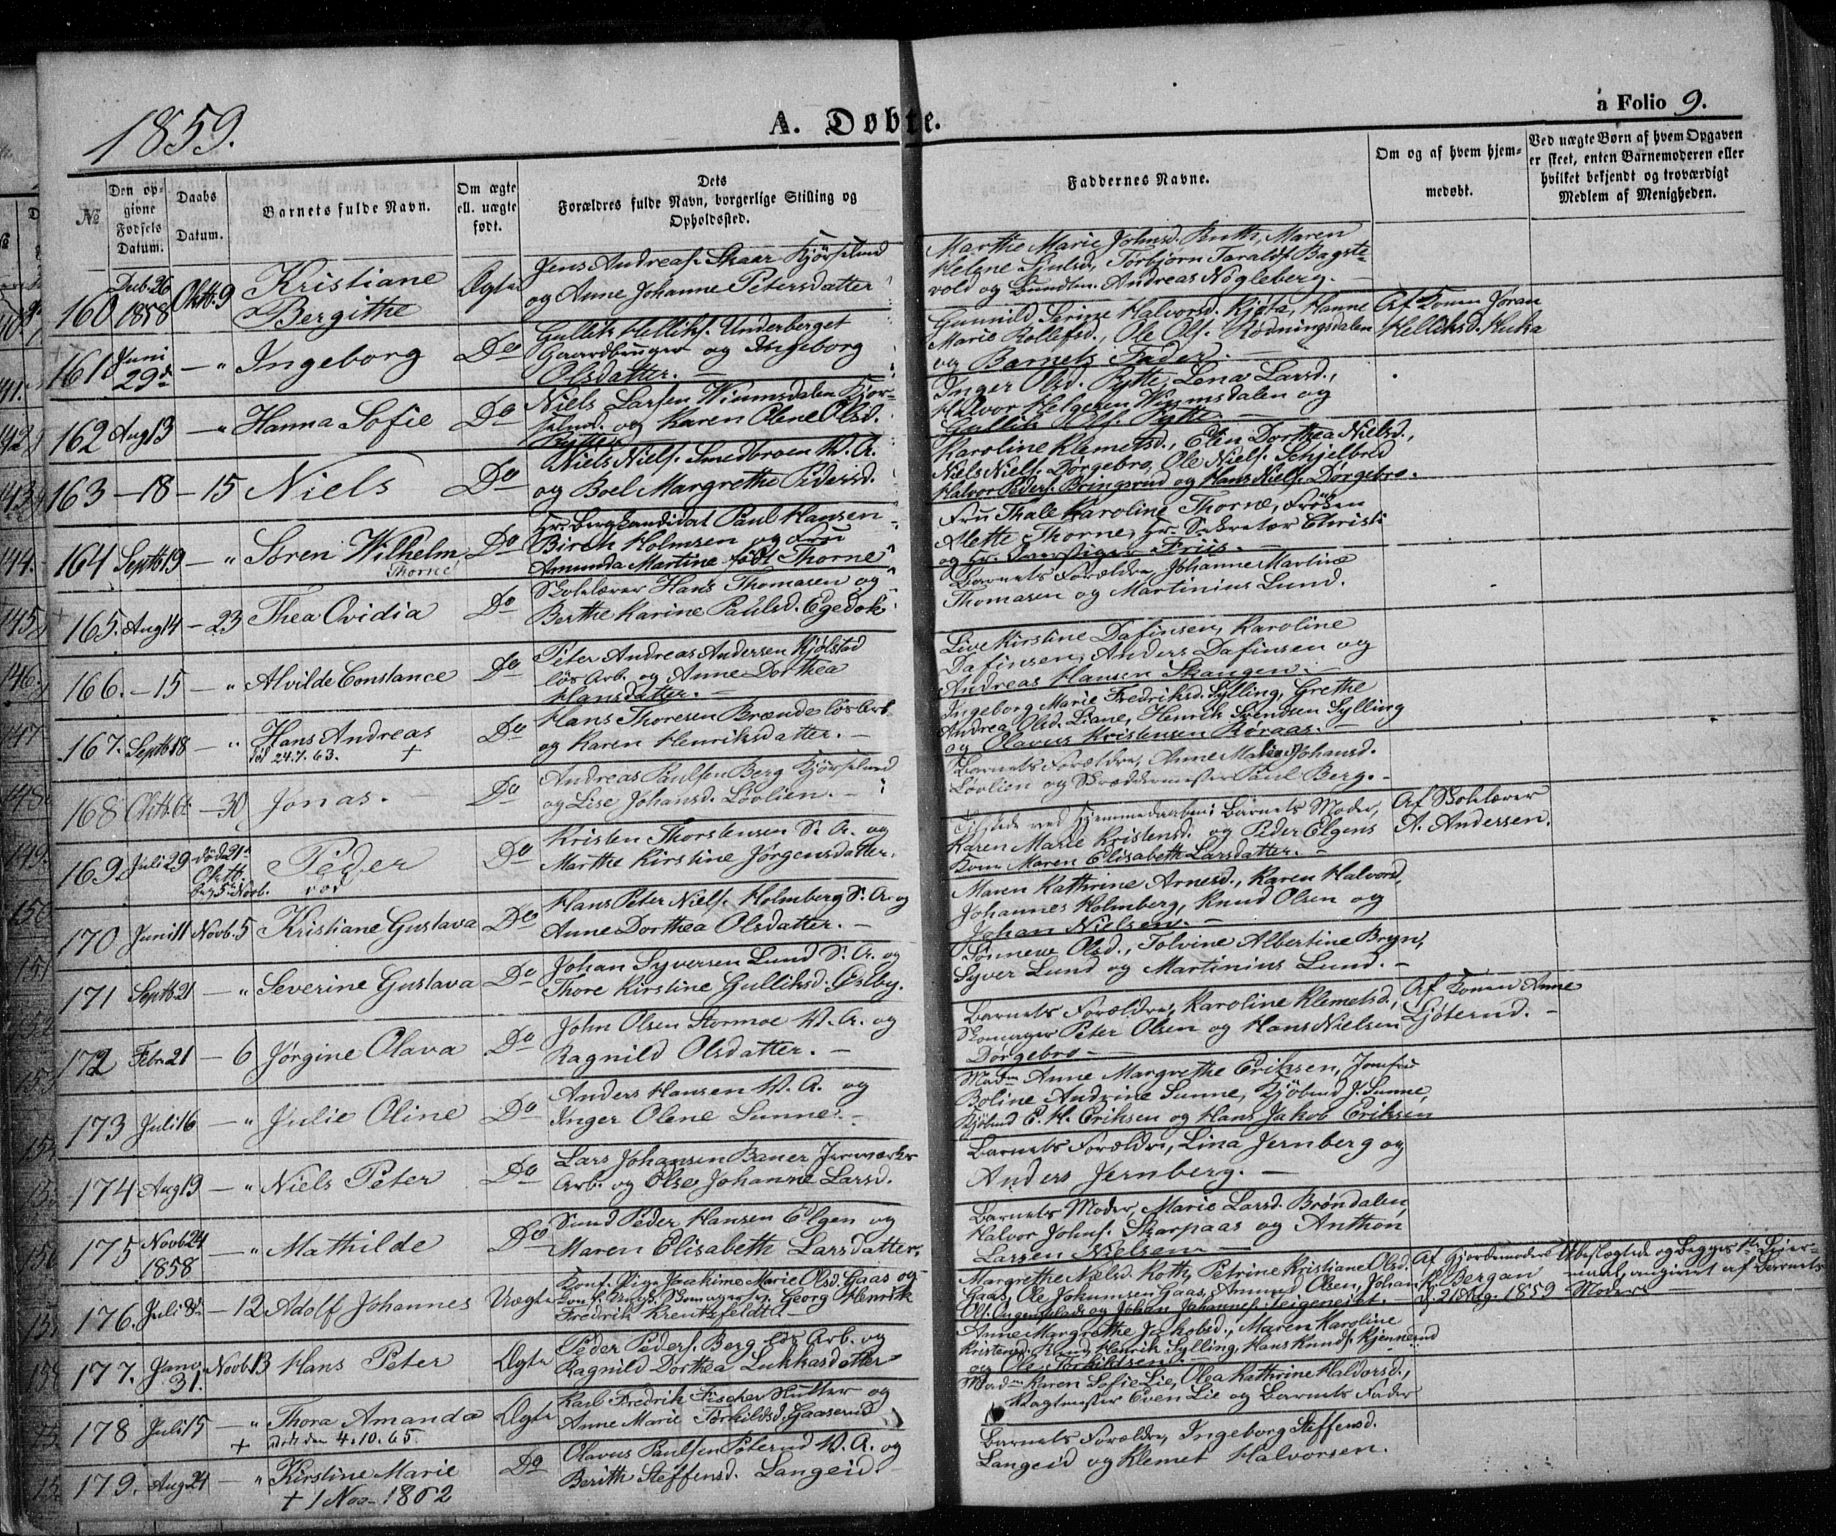 1859.
A. Døbte.
a Folio 9.
№
Den opgivne Fødsels Datum.
Daabs Datum.
Barnets fulde Navn.
Om ægte ell. uægte født.
Dets Forældres fulde Navn, borgerlige Stilling og Opholdssted.
Faddernes Navne.
Om og af hvem hjemmedøbt.
Ved uægte Børn af hvem Opgaven er skeet, enten Barnemoderen eller hvilket bekjendt og troværdigt Medlem af Menigheden.
160 Decb. 26 1858 Oktb. 9 Kristiane Bergithe Ægte
Jens Andreas. Skaar
og Anne Johanne Petersdatter
Marthe Marie Johnsd. Maren
Torbjørn Taralds.
vold og Andreas Nøgleberg.
161 Juni 29de — " Ingeborg Do
Gullik Helliks. Underberget
Gaardbruger og Ingeborg
Olsdatter. —
Gunnild Serine Halvorsd. Hanne
Marie Rollefsd., Ole Ols. Rødningsdalen
og Barnets Fader. —
Af Konen Jøran
Helliksd.
162 Aug 13 — " Hanna Sofie Do
Niels Larsen
og Karen Olene Olsd.
Inger Olsd. Pytte, Lena Larsd.,
Halvor Helgesen og
Gullik Ols. Pytte
163 — 18 — 15 Niels Do
Niels Niels. Smedbroen W. A.
og Boel Margrethe Pedersd.
Karoline Klemetsd., Elen Dorthea Nielsd.,
Niels Niels. Dørgebro, Ole Niels. Schjelbred
Halvor Peders. Bringsrud og Hans Niels. Dørgebro.
164 Septb 19 — " Søren Wilhelm Thorne Do
Hr. Bergkandidat Paul Hansen
Birch Holmsen og Fru
Amunda Martine født Thorne
Fru Thale Karoline Thorne, Frøken
Alette Thorne, Hr. Sekretær Christi
og Hr. Friis. —
165. Aug 14 — 23 Thea Ovidia Do
Skolelærer Hans Thomasen og
Berthe Karine Paulsd. Egedok
Barnets Forældre, Johanne Martine
Thomasen og Martinius Lund.
166. — 15 — " Alvilde Constance Do
Peter Andreas Andersen Kjølstad
løs Arb. og Anne Dorthea
Hansdatter. —
Live Kirstine Dafinsen, Karoline
Dafinsen, Anders Dafinsen og
Andreas Hansen Skangen. —
167. Septb 18 — " Hans Andreas Do
24.7.63. +
Hans Thoresen Brænde løs Arb.
og Karen Henriksdatter. —
Ingeborg Marie Fredriksd. Sylling, Grethe
Andrea Olsd. Liane, Henrik Svendsen Sylling
og Olavus Kristensen —
168 Oktb. 6 — 30 Jonas. Do
Andreas Paulsen Berg
og Lise Johansd. Løvlien. —
Barnets Forældre, Anne Johansd.
Løvlien og Skræddermester Paul Berg. —
169. Juli 29 Peder Do
død 21 Oktb.
Kristen Thorstensen S. A. og
Marthe Kirstine Jørgensdatter.
Tilstede ved Hjemmedaaben: Barnets Moder,
Karen Marie Kristensd. og Peder Elgens
Kone Maren Elisabeth Larsdatter. —
Af Skolelærer
A. Andersen.
170 Juni 11 Novb. 5 Kristiane Gustava Do
Hans Peter Niels. Holmberg S. A. og
Anne Dorthea Olsdatter. —
Maren Kathrine Arnesd., Karen Halvorsd.
Johannes Holmberg, Knud Olsen og
Johan Nielsen. —
171 Septb 21 — " Severine Gustava Do
Johan Syversen Lund S. A. og
Thore Kirstine Gulliksd. Østby.
Sønneve Olsd., Tolvine Albertine Bryn,
Syver Lund og Martinius Lund. —
172 Febr 21 — 6 Jørgine Olava Do
John Olsen Stormoe W. A. og
Ragnild Olsdatter. —
Barnets Forældre, Karoline Klemetsd.,
Skomager Peter Olsen og Hans Nielsen
Dørgebro —
Af Konen Anne
Ljøterud. —
173 Juli 16 — " Julie Oline Do
Anders Hansen W. A. og
Inger Olene Sunne. —
Madm Anne Margrethe Eriksen, Jomfru
Boline Andrine Sunne, Kjøbmd J. Sunne,
Kjøbmd E. H. Eriksen og Hans Jakob Eriksen
174 Aug 19 — " Niels Peter Do
Lars Johansen Bauer Jernværks
Arb. og Else Johanne Larsd.
Barnets Forældre, Lina Jernberg og
Anders Jernberg. —
175 Novb 24 1858 — " Mathilde Do
Smed Peder Hansen Elgen og
Maren Elisabeth Larsdatter.
Barnets Moder, Marie Larsd. Brøndalen,
Halvor Johns. Skarpaas og Anthon
Larsen Nielsen —
176. Juli 31 — 12 Adolf Johannes Uægte
Konf. Pige Joakime Marie Olsd. Gaas og
Georg Henrik
Fredrik Kreutzfeldt
Margrethe Nielsd. Petrine Kristiane Olsd.
Gaas, Ole Jokumsen Gaas, Amund Olsen, Johan
og Johan Johannes.
Af Gjordemoder
Bergan
d. 21 Aug. 1859
Ubeslægtede og Begges 1te Leiermaal,
angivet af Barnets
Moder —
177. Janv 31. Novb 13 Hans Peter Ægte
Peder Peders. Berg løs Arb. og
Ragnild Dorthea Lukkasdatter
Anne Margrethe Jakobsd., Maren Karoline
Kristensd. Henrik Sylling, Hans Knuds. Kjennerud
og Ole Torkildsen. —
178 Juli 15 — " Thora Amanda Ægte
+ død den 4.10.65.
Karl Fredrik Fischer Hutter og
Anne Marie Torkildsd. Gaaserud
Madm Karen Sofie Lie, Olea Kathrine Haldorsd.,
Vagtmester Even Lie og Barnets Fader
179. Aug 24 — " Kirstine Marie Do
+ 1 Nov. 1862
Olavus Paulsen W. A. og
Berith Steffensd. Langeid.
Barnets Forældre, Ingeborg Steffensd.
Langeid og Klemet Halvorsen.